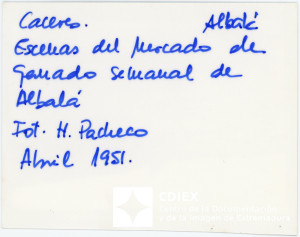 Caceres. Albalá
Escenas del Mercado de
Ganado semanal de
Albalá
Fot. H. Pacheco
Abril 1951.
CDIEX